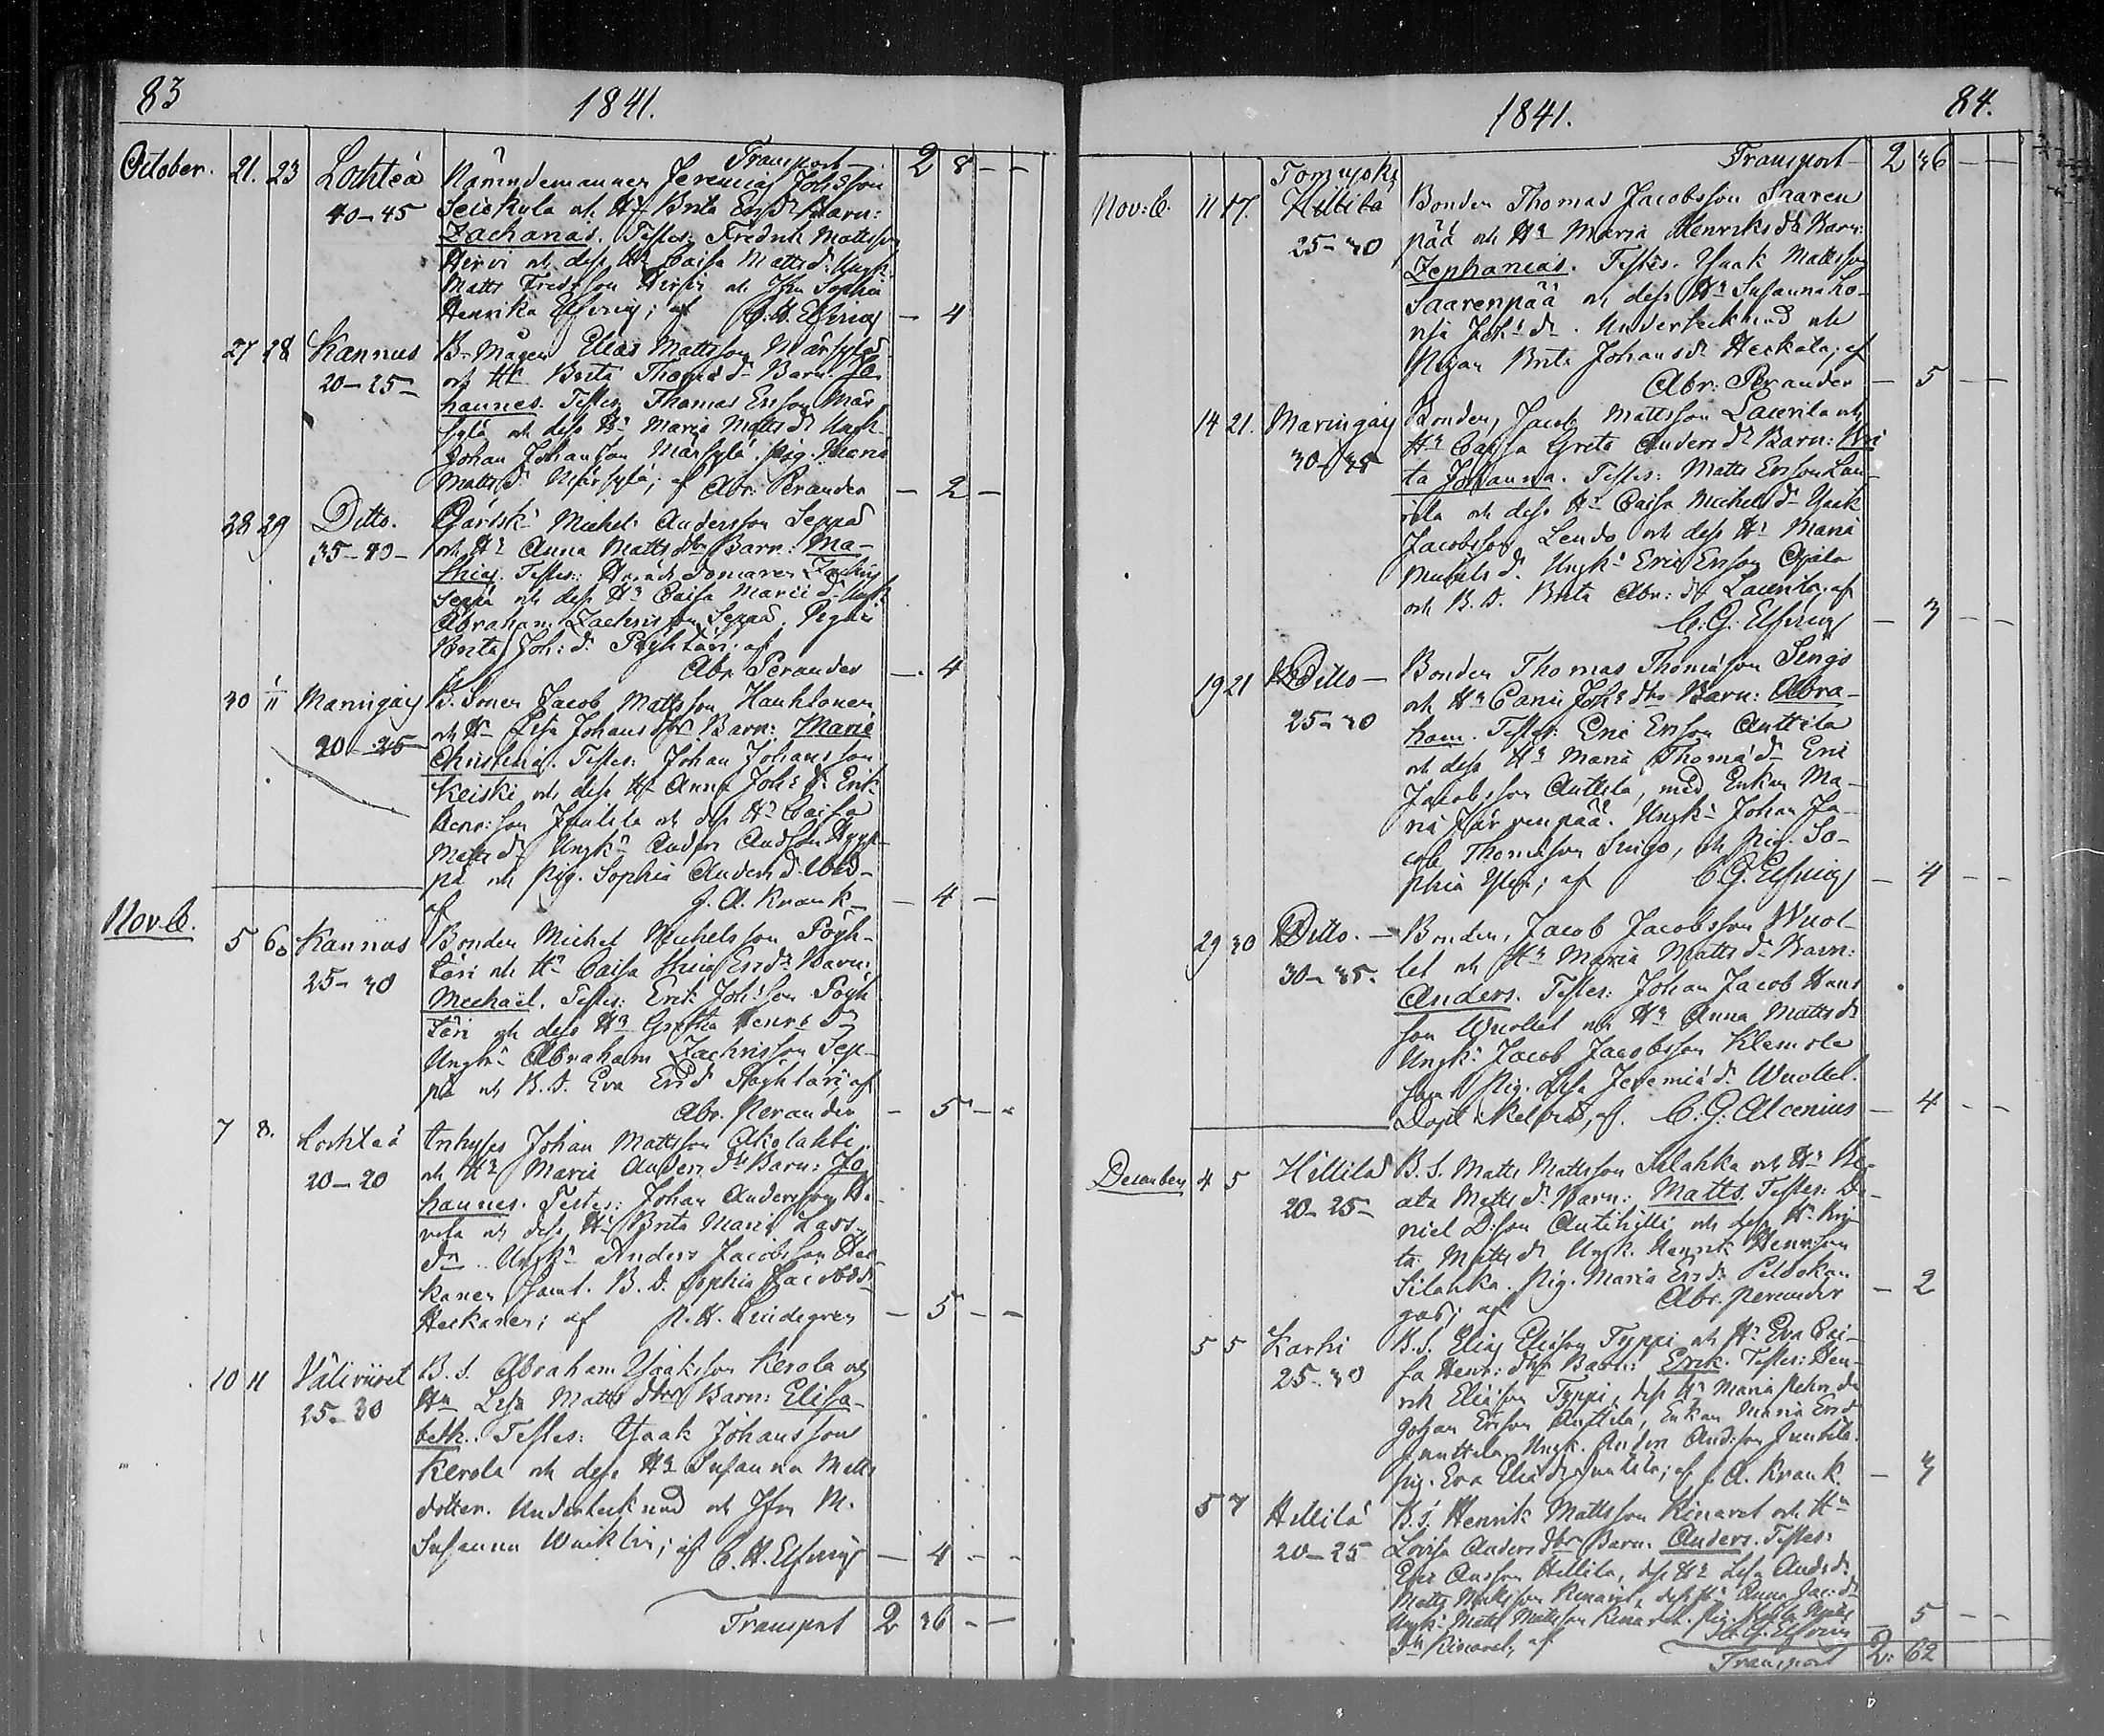 83
1841.
Transport 2 8 - -
October. 21. 23 Lochteå Nämndemannen Jeremias Johsson
40-45 och Hu Brita Ersdr Barn:
Zacharias. Testes: Fredrik Mattsson
Hirvi och dess Hu Caisa Mattsd. Ungk.
Matts Fredrsson Hirvi och Jfru Sophia
Henrika Elfving; af C. H. Elfving - 4
27 28 Kannus B. Mågen Elias Mattsson Märsylä
20-25 och Hu Brita Thomasd. Barn: Jo
hannes. Testes: Thomas Ersson Mär
sylä och dess Hu Maria Mattsd. Ungk.
Johan Johansson Märsylä. Pig. Maria
Mattsd. Märsylä; af Abr. Perander - 2 -
28 29 Ditto. Michel Andersson Seppä
35-40 och Hu Anna Mattsdtr Barn: Ma-
thias. Testes: Häradsdomaren
Seppä och dess Hu Caisa Ungk.
Abraham Zachrisson Seppä. Pigan
Brita Joh: d. Pöyhtäri; af
Abr. Perander - 4
30 1/11 Maringais B. Sonen Jacob Mattsson
20-25 och Hu Lisa Johansdtr Barn: Maria
Christina. Testes: Johan Johansson
Keiski och dess Hu Anna Johs d. Erik
Juntila och dess Hu Caisa
Matts d. Ungk. Anders Andsson
på och Pig. Sophia Andersd.
af J. A. Krank - 4 -
Nov.b. 5 6 Kannus Bonden Michel Michelsson Pöyh-
25-30 täri och Hu Caisa Ersdr Barn:
Michaël. Testes: Erik Johsson Pöyh
täri och dess Hu Gretha Henrs dr
Ungk. Abraham Zachrisson Sep-
pä och B. D. Eva Ersd. Pöyhtäri; af
Abr. Perander - 5 - -
7 8. Lochteå Inhyses Johan Mattsson
20-20 och Hu Maria Anders dr Barn: Jo
hannes. Testes: Johan Andersson
och dess Hu Brita Maria Lars
dr. Ungk. Anders Jacobsson Hee
kanen, samt B. D. Sophia Jacobsd.
Heekanen; af P. H. Lindegren - 5 - -
10 11 Väliviiret B. S. Abraham Isaksson Kerola och
25-30 Hu Lisa Matts dtr Barn: Elisa-
beth. Testes: Isaak Johansson
Kerola och dess Hu Susanna Matts
dotter. Undertecknad och Jfru M.
Susanna ; af C. H. Elfving - 4 - -
Transport 2 36 - -
84.
1841.
Transport 2 36 - -
Nov:b. 11 17. Hillilä Bonden Thomas Jacobsson Saaren
25-30 pää och Hu Maria Henriksdr Barn:
Zephanias. Testes: Isaak Mattsson
Saarenpää och dess Hu Susanna Lo-
visa Johs dr. Undertecknad och
Pigan Brita Johans d. ; af
Abr: Perander - 5 - -
14 21. Maringais Bonden Jacob Mattsson Laurila och
30-35 Hu Caisa Greta Anders dr Barn: Bri
ta Johanna. Testes: Matts Ersson Lau
rila och dess Hu Caisa Michelsdr Isaak
Jacobsson och dess Hu Maria
Michels d. Ungk. Eric Ersson
och B. D. Brita Abr: dr Laurila, af
C. G. Elfving - 3 - -
19 21 Ditto - Bonden Thomas Thomasson
25-30 och Hu Carin Johs dtr Barn: Abra-
ham. Testes: Eric Ersson Anttila
och dess Hu Maria Thomasd. Eric
Jacobsson Anttila, med Enkan Ma-
ria Järvenpää. Ungk. Johan Ja-
cob Thomasson , och Pig. So-
phia ; af C. G. Elfving - 4 - -
29 30 Ditto. - Bonden Jacob Jacobsson Wuol-
30-35. let och Hu Maria Matts dr Barn:
Anders. Testes: Johan Jacob Hans
son Wuollet och Hu Anna Matts dr
Ungk. Jacob Jacobsson Klemola
samt Pig. Lisa Jeremiasd. Wuollet.
Döpt i Kelviå, af C. G. Alcenius - 4 - -
December 4 5 Hillilä B. S. Matts Mattsson Silahka och Hu Be-
20-25- ata Matts d. Barn: Matts. Testes: Da-
niel D:son och dess Hu Bri-
ta Matts dr Ungk. Henrik Henrsson
Silahka. Pig. Maria Ersd.
; af Abr. Perander - 2
5 5 Karhi B. S. Elias Eliasson Typpi och Hu Eva Cai-
25-30 sa Henr: dtr Barn: Erik. Testes: Hen-
rik Eliasson Typpi, dess Hu Maria
Johan Ersson Anttila, Enkan Maria Ersd.
Junttila, Ungk. Anders Andsson Junttila.
Pig. Eva Eliasdr Junttila; af J. A. Krank - 3
5 7 Hillilä B. S. Henrik Mattsson Kinaret och Hu
20-25 Lovisa Anders dtr Barn: Anders. Testes:
Eric Hillilä, dess Hu Lisa Ands d.
Matts Mattsson Kinaret, dess Hu Anna Jac: dr
Ungk. Matts Mattsson Kinaret. Pig.
dr Kinaret; af C. G. Elfving 5 - -
Transport 2 62